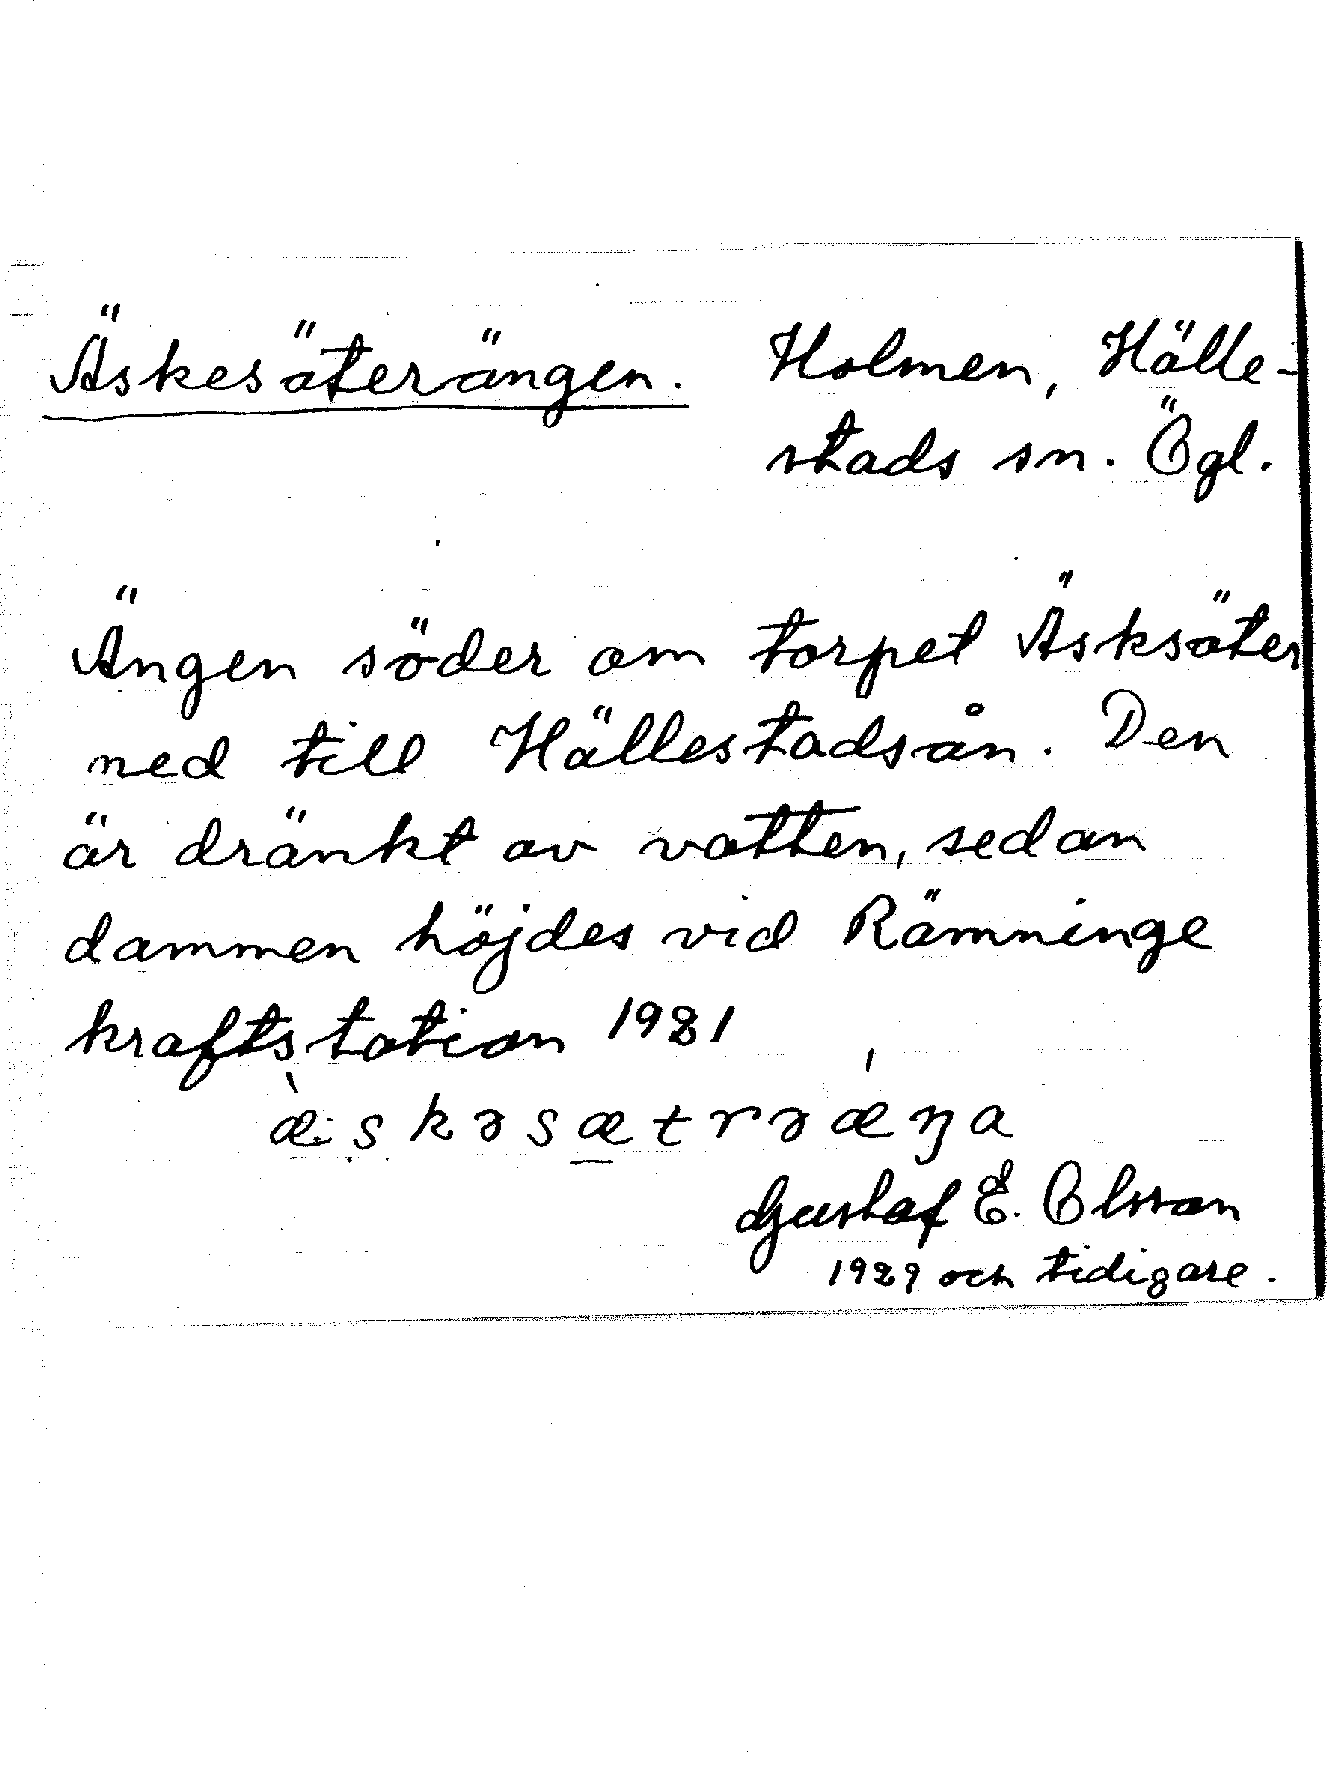 Äskesäterängen. Holmen, Hälle-
stads sn. Ögl.
Ängen söder om torpet Äsksäter
ned till Hällestadsån. Den
är dränkt av vatten, sedan
dammen höjdes vid Rämninge
kraftstation 1921
æ̀skəsætrəǽŋa
Gustaf E. Olsson
1929 och tidigare.